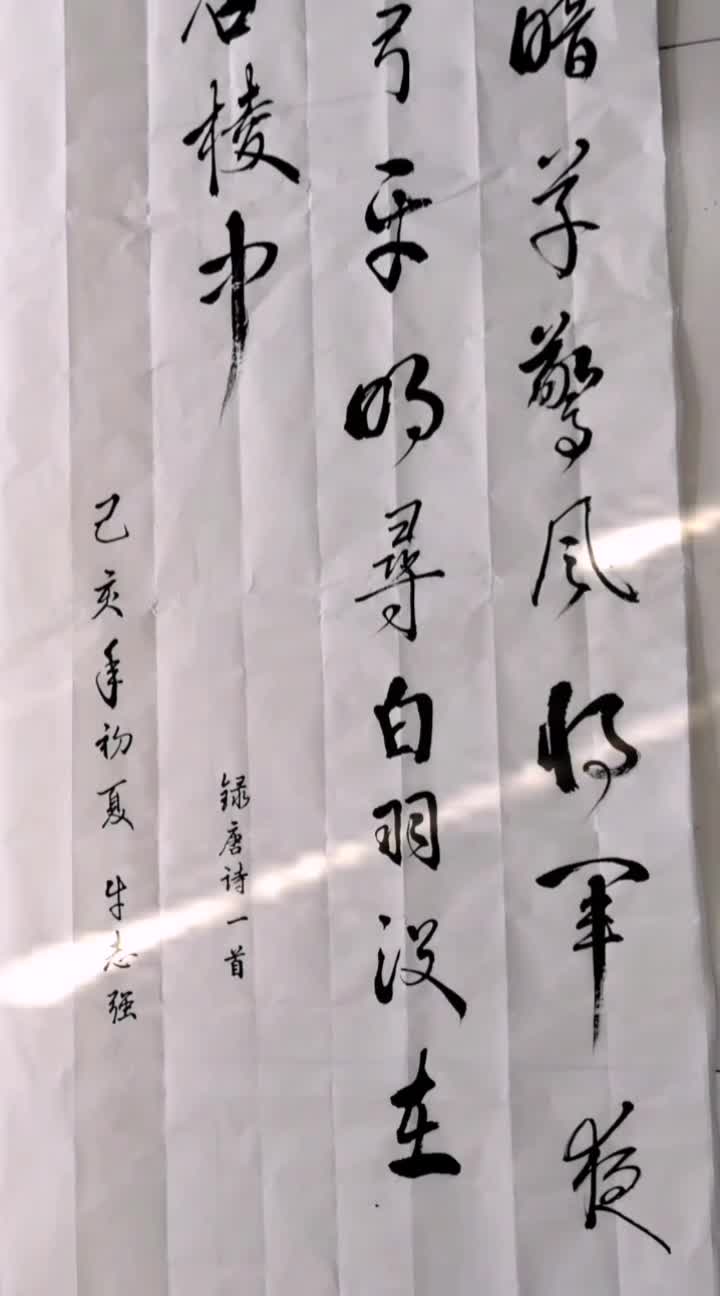 暗草驚风将軍夜
弓平明尋白羽没在
石棱中
録唐诗一首
己亥年初夏 牛志强